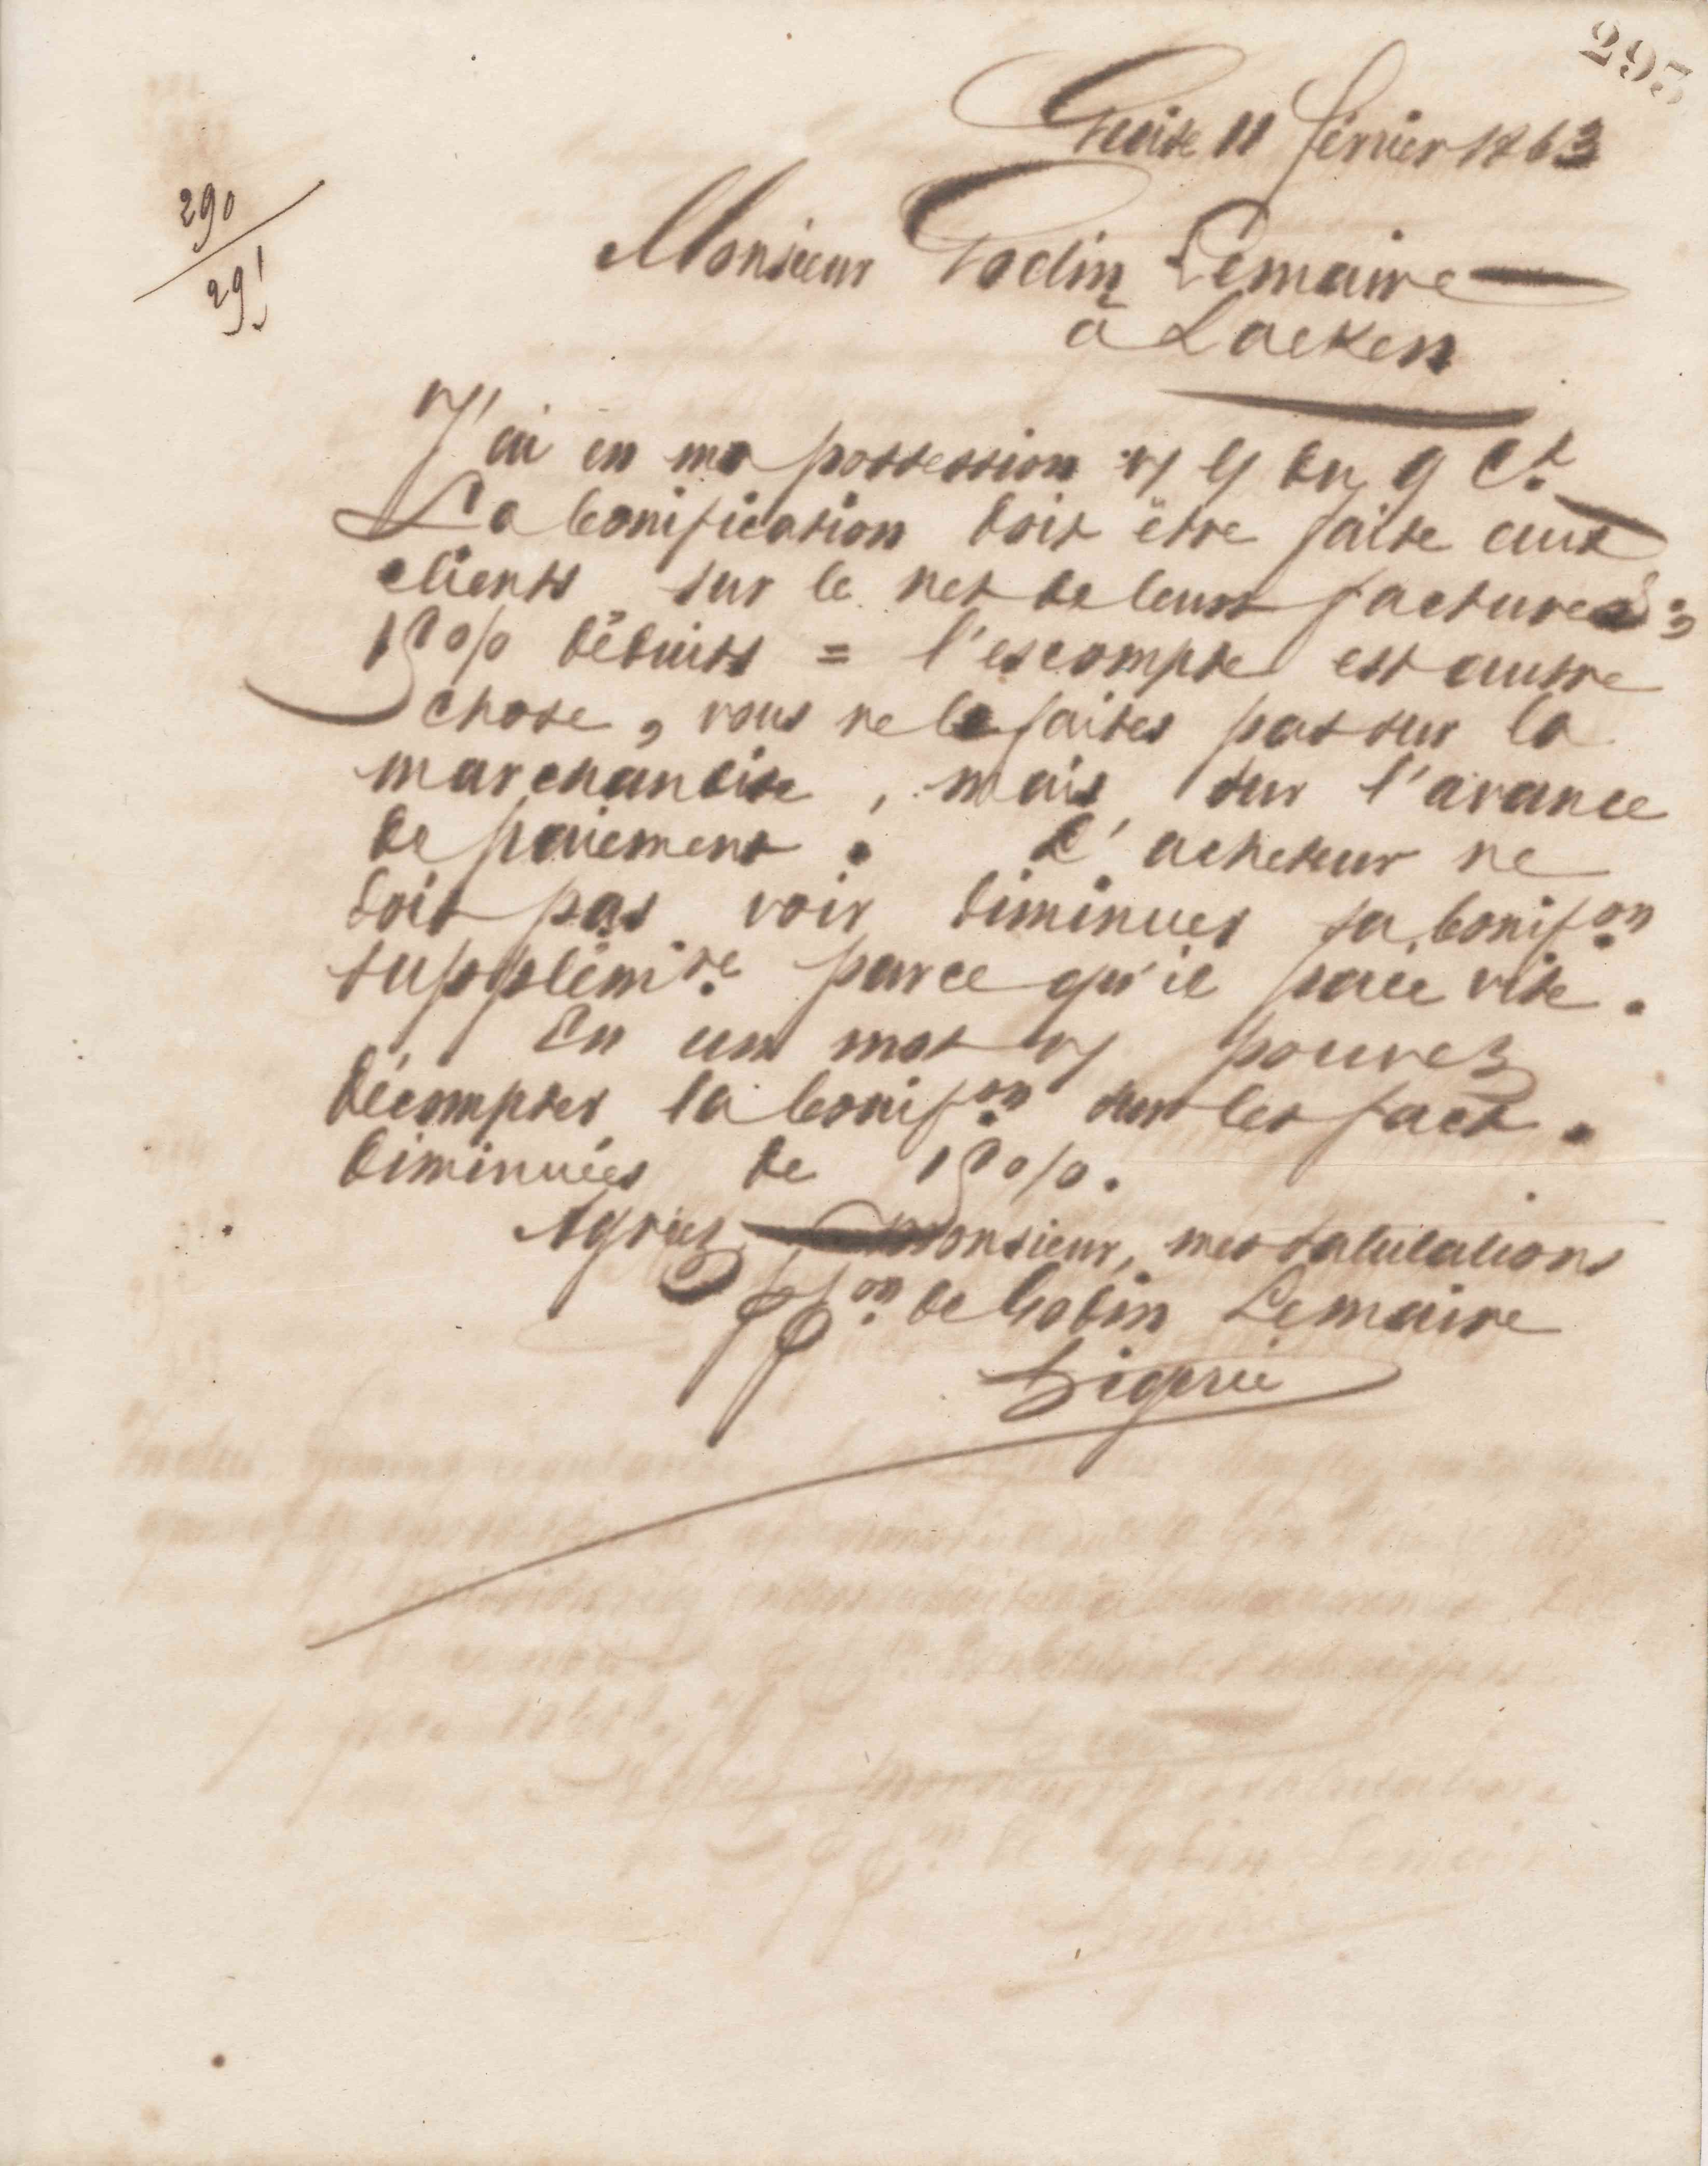 293
Guise 11 février 1863
290
291
Monsieur Godin Lemaire
à Laeken
J'ai en ma possession du 9 Ct.
La bonification doit être faite aux
clients sur le net de leurs factures ;
15 % déduits = l'escompte est autre
chose, vous ne le faites pas sur la
marchandise, mais sur l'avance
de paiement. L'acheteur ne
doit pas voir diminuer sa bonifon
supplémre parce qu'il paie vite.
En un mot vs pouvez
décompter la bonifon sur les fact.
diminuées de 15 %.
Agréez Monsieur, mes salutations
de Godin Lemaire